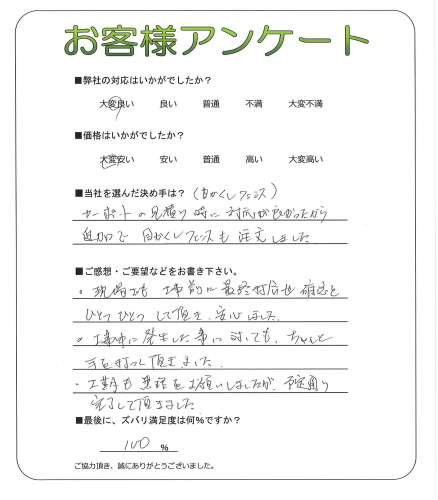 お客様アンケート
■弊社の対応はいかがでしたか？
大変良い 良い 普通 不満 大変不満
■価格はいかがでしたか？
大変安い 安い 普通 高い 大変高い
■当社を選んだ決め手は？ (目かくしフェンス)
カーポートの見積り時に対応が良かったから
追加で目かくしフェンスも注文しました
■ご感想・ご要望などをお書き下さい。
・現場でも工事前に最終打合せ確認と
ひとつひとつして頂き、安心しました。
・工事中に発生した事に対しても、ちゃんと
手を打って頂きました。
・工期も無理をお願いしましたが、予定通り
完了して頂きました
■最後に、ズバリ満足度は何％ですか？
100 ％
ご協力頂き、誠にありがとうございました。